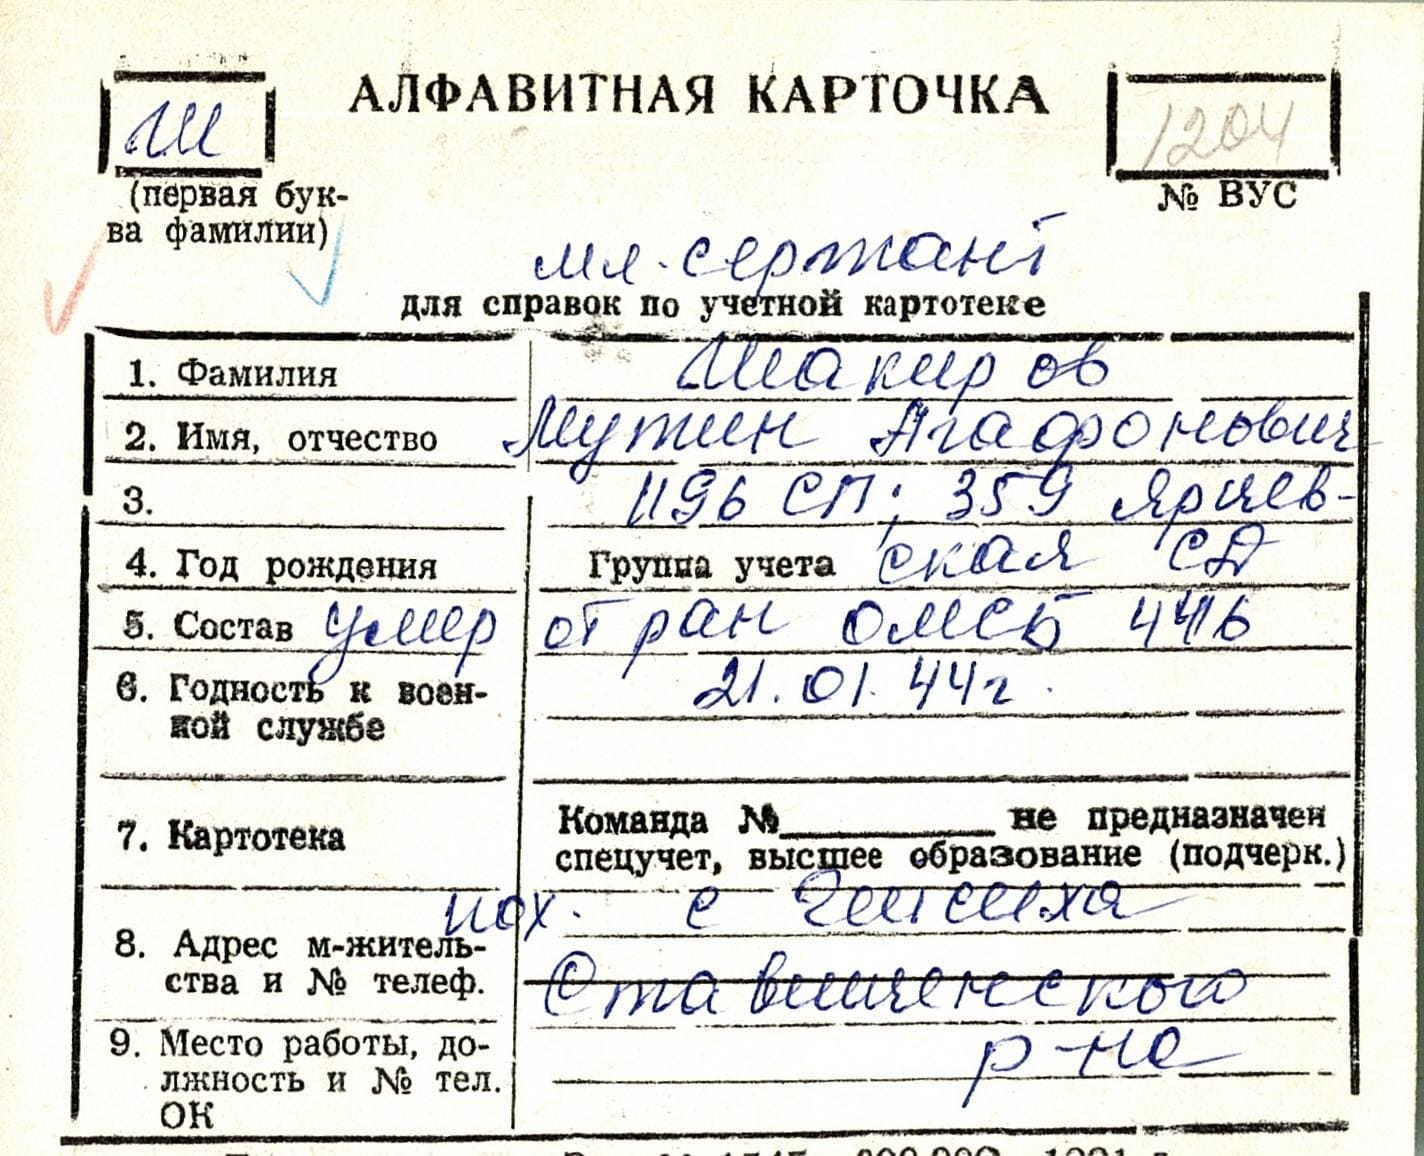 Ш
АЛФАВИТНАЯ КАРТОЧКА
1204
(первая бук-
ва фамилии)
№ ВУС
мл. сержант
для справок по учетной картотеке
1. Фамилия Шакиров
2. Имя, отчество Мутин Агафонович
3. 1196 СП; 359 Ярцев-
4. Год рождения Группа учета ская СД
5. Состав умер от ран омсб 4416
6. Годность к воен- 21.01.44г.
ной службе
7. Картотека Команда № не предназначен
спецучет, высшее образование (подчерк.)
пох. с
8. Адрес м-житель-
ства и № телеф. Ставищенского
9. Место работы, до- р-на
лжность и № тел.
ОК